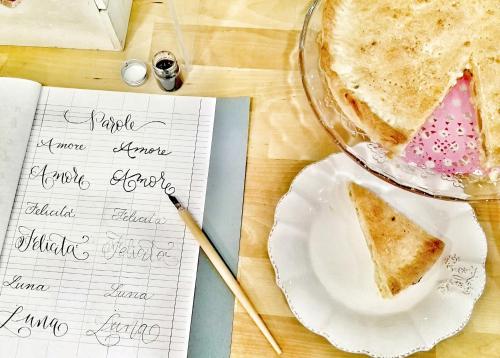 Parole
Amore Amore
Amore Amore
Felicità Felicità
Felicità Felicità
Luna Luna
Luna Luna